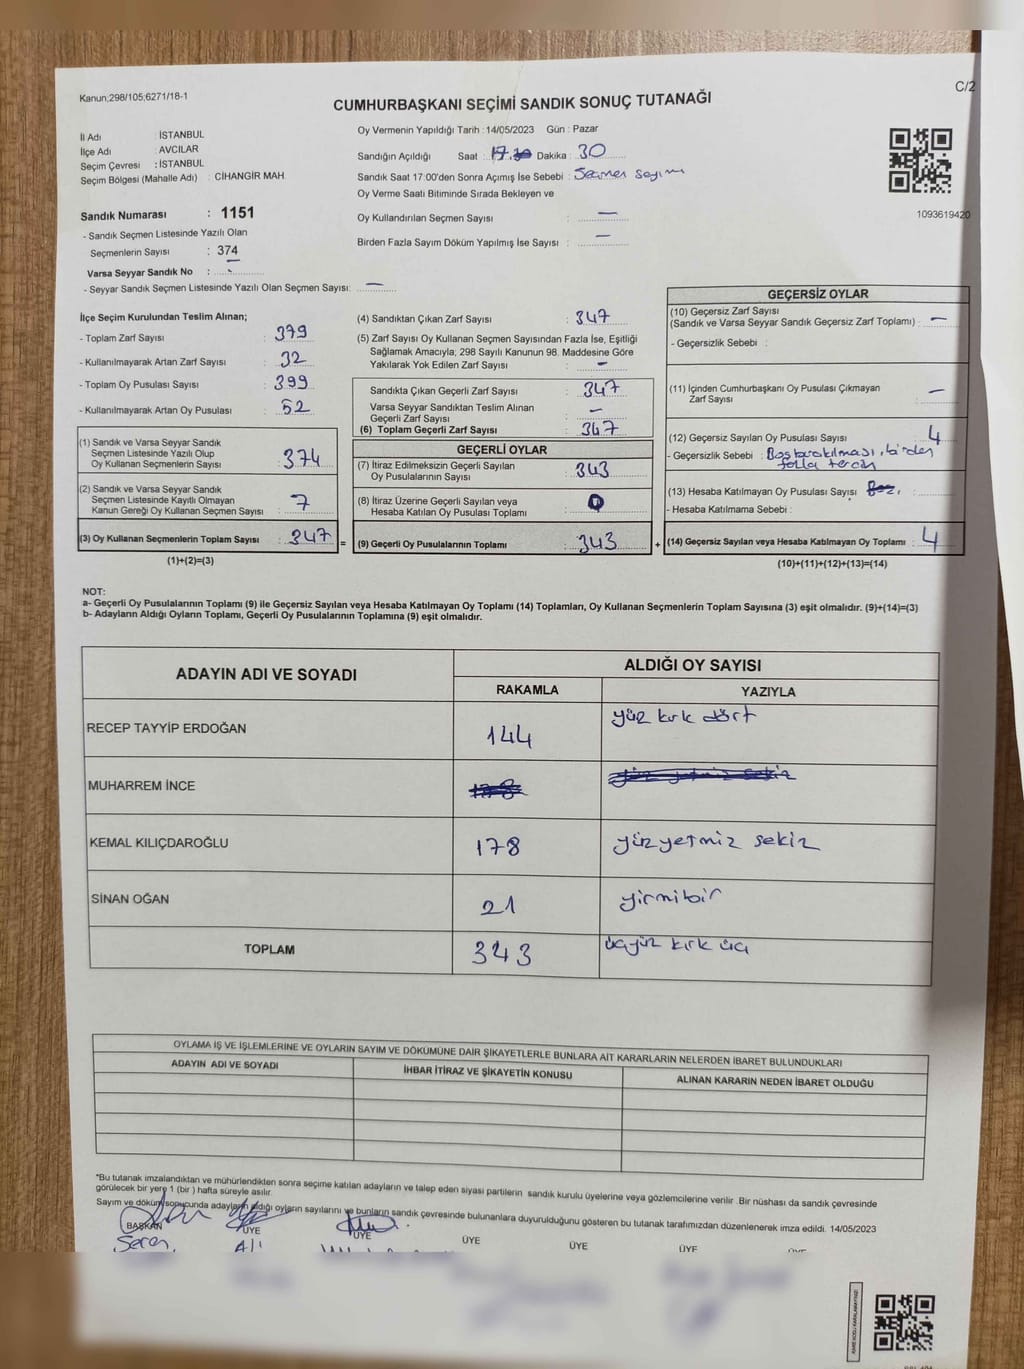 Kanun;298/105;6271/18-1
C/2
CUMHURBAŞKANI SEÇİMİ SANDIK SONUÇ TUTANAĞI
İl Adı : İSTANBUL
İlçe Adı : AVCILAR
Seçim Çevresi : İSTANBUL
Seçim Bölgesi (Mahalle Adı) : CİHANGİR MAH
Sandık Numarası : 1151
- Sandık Seçmen Listesinde Yazılı Olan
Seçmenlerin Sayısı : 374
Varsa Seyyar Sandık No :
- Seyyar Sandık Seçmen Listesinde Yazılı Olan Seçmen Sayısı: —
Oy Vermenin Yapıldığı Tarih : 14/05/2023 Gün : Pazar
Sandığın Açıldığı Saat : 17 Dakika : 30
Sandık Saat 17:00'den Sonra Açımış İse Sebebi : Seçmen sayımı
Oy Verme Saati Bitiminde Sırada Bekleyen ve
Oy Kullandırılan Seçmen Sayısı : —
Birden Fazla Sayım Döküm Yapılmış İse Sayısı : —
1093619420
İlçe Seçim Kurulundan Teslim Alınan;
- Toplam Zarf Sayısı : 379
- Kullanılmayarak Artan Zarf Sayısı : 32
- Toplam Oy Pusulası Sayısı : 399
- Kullanılmayarak Artan Oy Pusulası : 52
(1) Sandık ve Varsa Seyyar Sandık
Seçmen Listesinde Yazılı Olup
Oy Kullanan Seçmenlerin Sayısı : 374
(2) Sandık ve Varsa Seyyar Sandık
Seçmen Listesinde Kayıtlı Olmayan
Kanun Gereği Oy Kullanan Seçmen Sayısı : 7
(3) Oy Kullanan Seçmenlerin Toplam Sayısı : 347 =
(1)+(2)=(3)
(4) Sandıktan Çıkan Zarf Sayısı : 347
(5) Zarf Sayısı Oy Kullanan Seçmen Sayısından Fazla İse, Eşitliği
Sağlamak Amacıyla; 298 Sayılı Kanunun 98. Maddesine Göre
Yakılarak Yok Edilen Zarf Sayısı : —
Sandıkta Çıkan Geçerli Zarf Sayısı : 347
Varsa Seyyar Sandıktan Teslim Alınan
Geçerli Zarf Sayısı : —
(6) Toplam Geçerli Zarf Sayısı : 347
GEÇERLİ OYLAR
(7) İtiraz Edilmeksizin Geçerli Sayılan
Oy Pusulalarının Sayısı : 343
(8) İtiraz Üzerine Geçerli Sayılan veya
Hesaba Katılan Oy Pusulası Toplamı : 0
(9) Geçerli Oy Pusulalarının Toplamı : 343 +
GEÇERSİZ OYLAR
(10) Geçersiz Zarf Sayısı
(Sandık ve Varsa Seyyar Sandık Geçersiz Zarf Toplamı) : —
- Geçersizlik Sebebi :
(11) İçinden Cumhurbaşkanı Oy Pusulası Çıkmayan
Zarf Sayısı : —
(12) Geçersiz Sayılan Oy Pusulası Sayısı : 4
- Geçersizlik Sebebi : Boş bırakılması, birden
fazla tercih
(13) Hesaba Katılmayan Oy Pusulası Sayısı
- Hesaba Katılmama Sebebi :
(14) Geçersiz Sayılan veya Hesaba Katılmayan Oy Toplamı : 4
(10)+(11)+(12)+(13)=(14)
NOT:
a- Geçerli Oy Pusulalarının Toplamı (9) ile Geçersiz Sayılan veya Hesaba Katılmayan Oy Toplamı (14) Toplamları, Oy Kullanan Seçmenlerin Toplam Sayısına (3) eşit olmalıdır. (9)+(14)=(3)
b- Adayların Aldığı Oyların Toplamı, Geçerli Oy Pusulalarının Toplamına (9) eşit olmalıdır.
ADAYIN ADI VE SOYADI
ALDIĞI OY SAYISI
RAKAMLA YAZIYLA
RECEP TAYYİP ERDOĞAN 144 yüz kırk dört
MUHARREM İNCE 178 yüz yetmiz sekiz
KEMAL KILIÇDAROĞLU 178 yüzyetmiz sekiz
SİNAN OĞAN 21 yirmibir
TOPLAM 343 üçyüz kırk üç
OYLAMA İŞ VE İŞLEMLERİNE VE OYLARIN SAYIM VE DÖKÜMÜNE DAİR ŞİKAYETLERLE BUNLARA AİT KARARLARIN NELERDEN İBARET BULUNDUKLARI
ADAYIN ADI VE SOYADI İHBAR İTİRAZ VE ŞİKAYETİN KONUSU ALINAN KARARIN NEDEN İBARET OLDUĞU
*Bu tutanak imzalandıktan ve mühürlendikten sonra seçime katılan adayların ve talep eden siyasi partilerin sandık kurulu üyelerine veya gözlemcilerine verilir .Bir nüshası da sandık çevresinde
görülecek bir yere 1 (bir ) hafta süreyle asılır.
Sayım ve döküm sonucunda adayların aldığı oyların sayılarını ve bunların sandık çevresinde bulunanlara duyurulduğunu gösteren bu tutanak tarafımızdan düzenlenerek imza edildi. 14/05/2023
BAŞKAN ÜYE ÜYE ÜYE ÜYE ÜYE ÜYE
Seren Ali